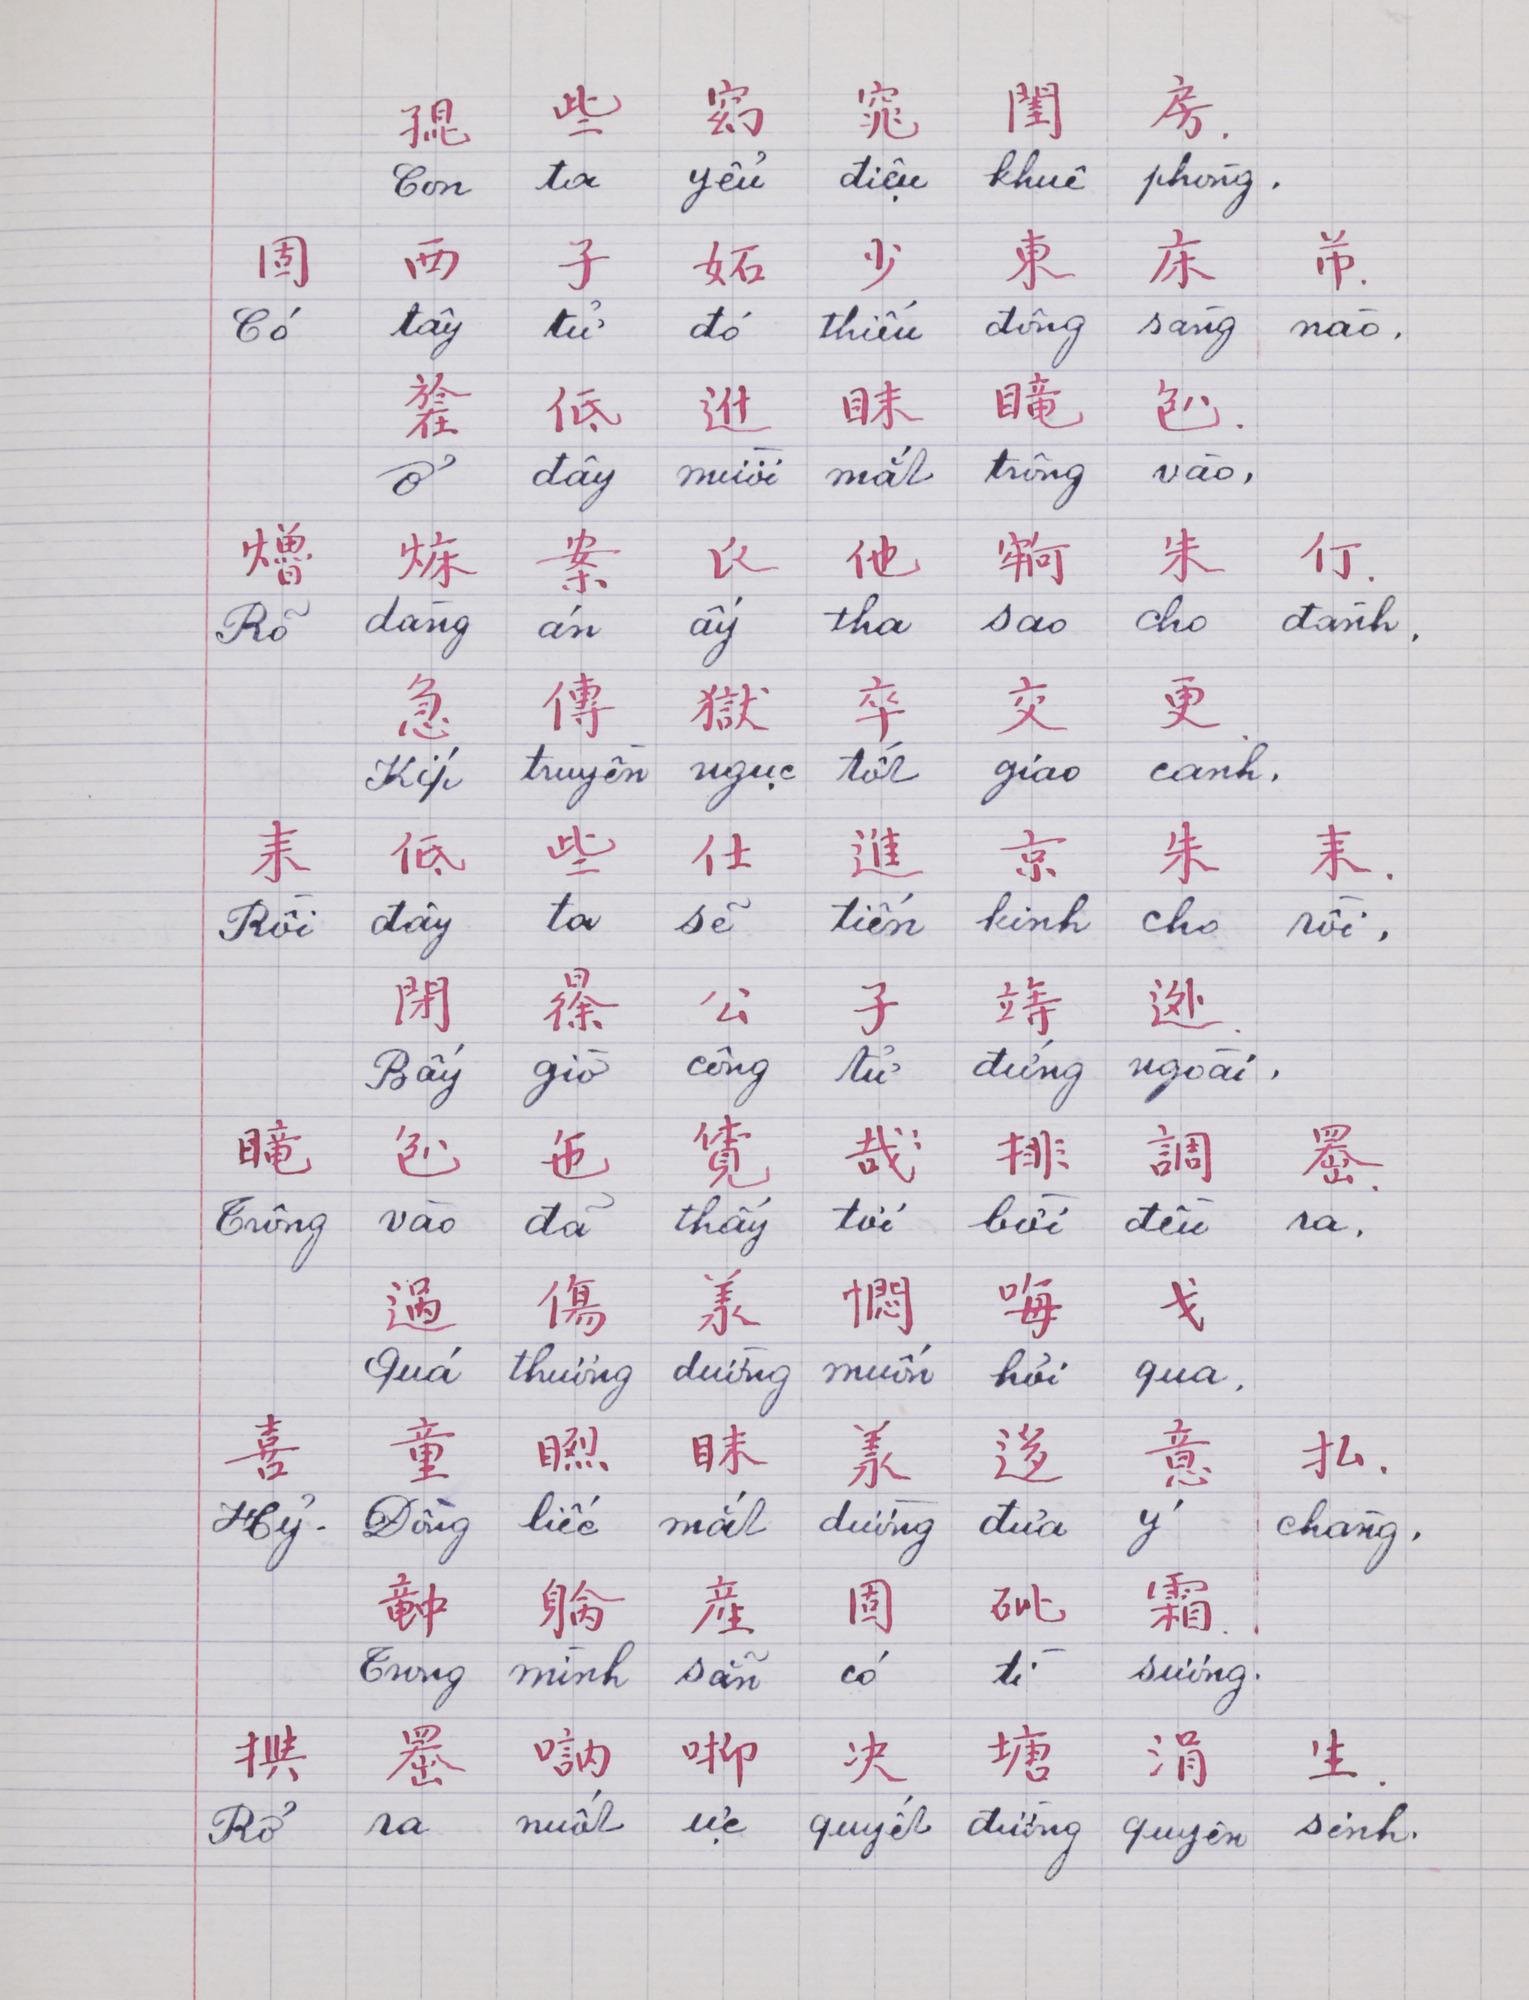 𡥵些窈窕閨房.
Con ta yểu điệu khuê phòng.
固西子妬少東床芇.
Có tây tử đó thiếu đông sàng nào.
低𨑮眜𥊚𠓨.
ở đây mười mắt trông vào,
案氏他朱仃.
Rõ dàng án ấy tha sao cho đành,
急傳獄卒交更.
Kíp truyền ngục tốt giao canh.
耒低些仕進京朱耒.
Rồi đây ta sẽ tiến kinh cho rồi,
閉公子外.
Bấy giờ công tử đứng ngoài,
𥊚𠓨㐌哉排調𠚢.
Trông vào đã thấy tơi bời đều ra,
過傷羕憫𠳨戈
Quá thương dường muốn hỏi qua,
喜童眜羕迻意払.
Hỷ-Đồng liếc mắt dường đưa ý chàng,
𥪝𨉟産固霜.
Trong mình sẵn có tì sương.
拱𠚢决塘涓生.
Rở ra nuốt ực quyết đường quyên sinh.